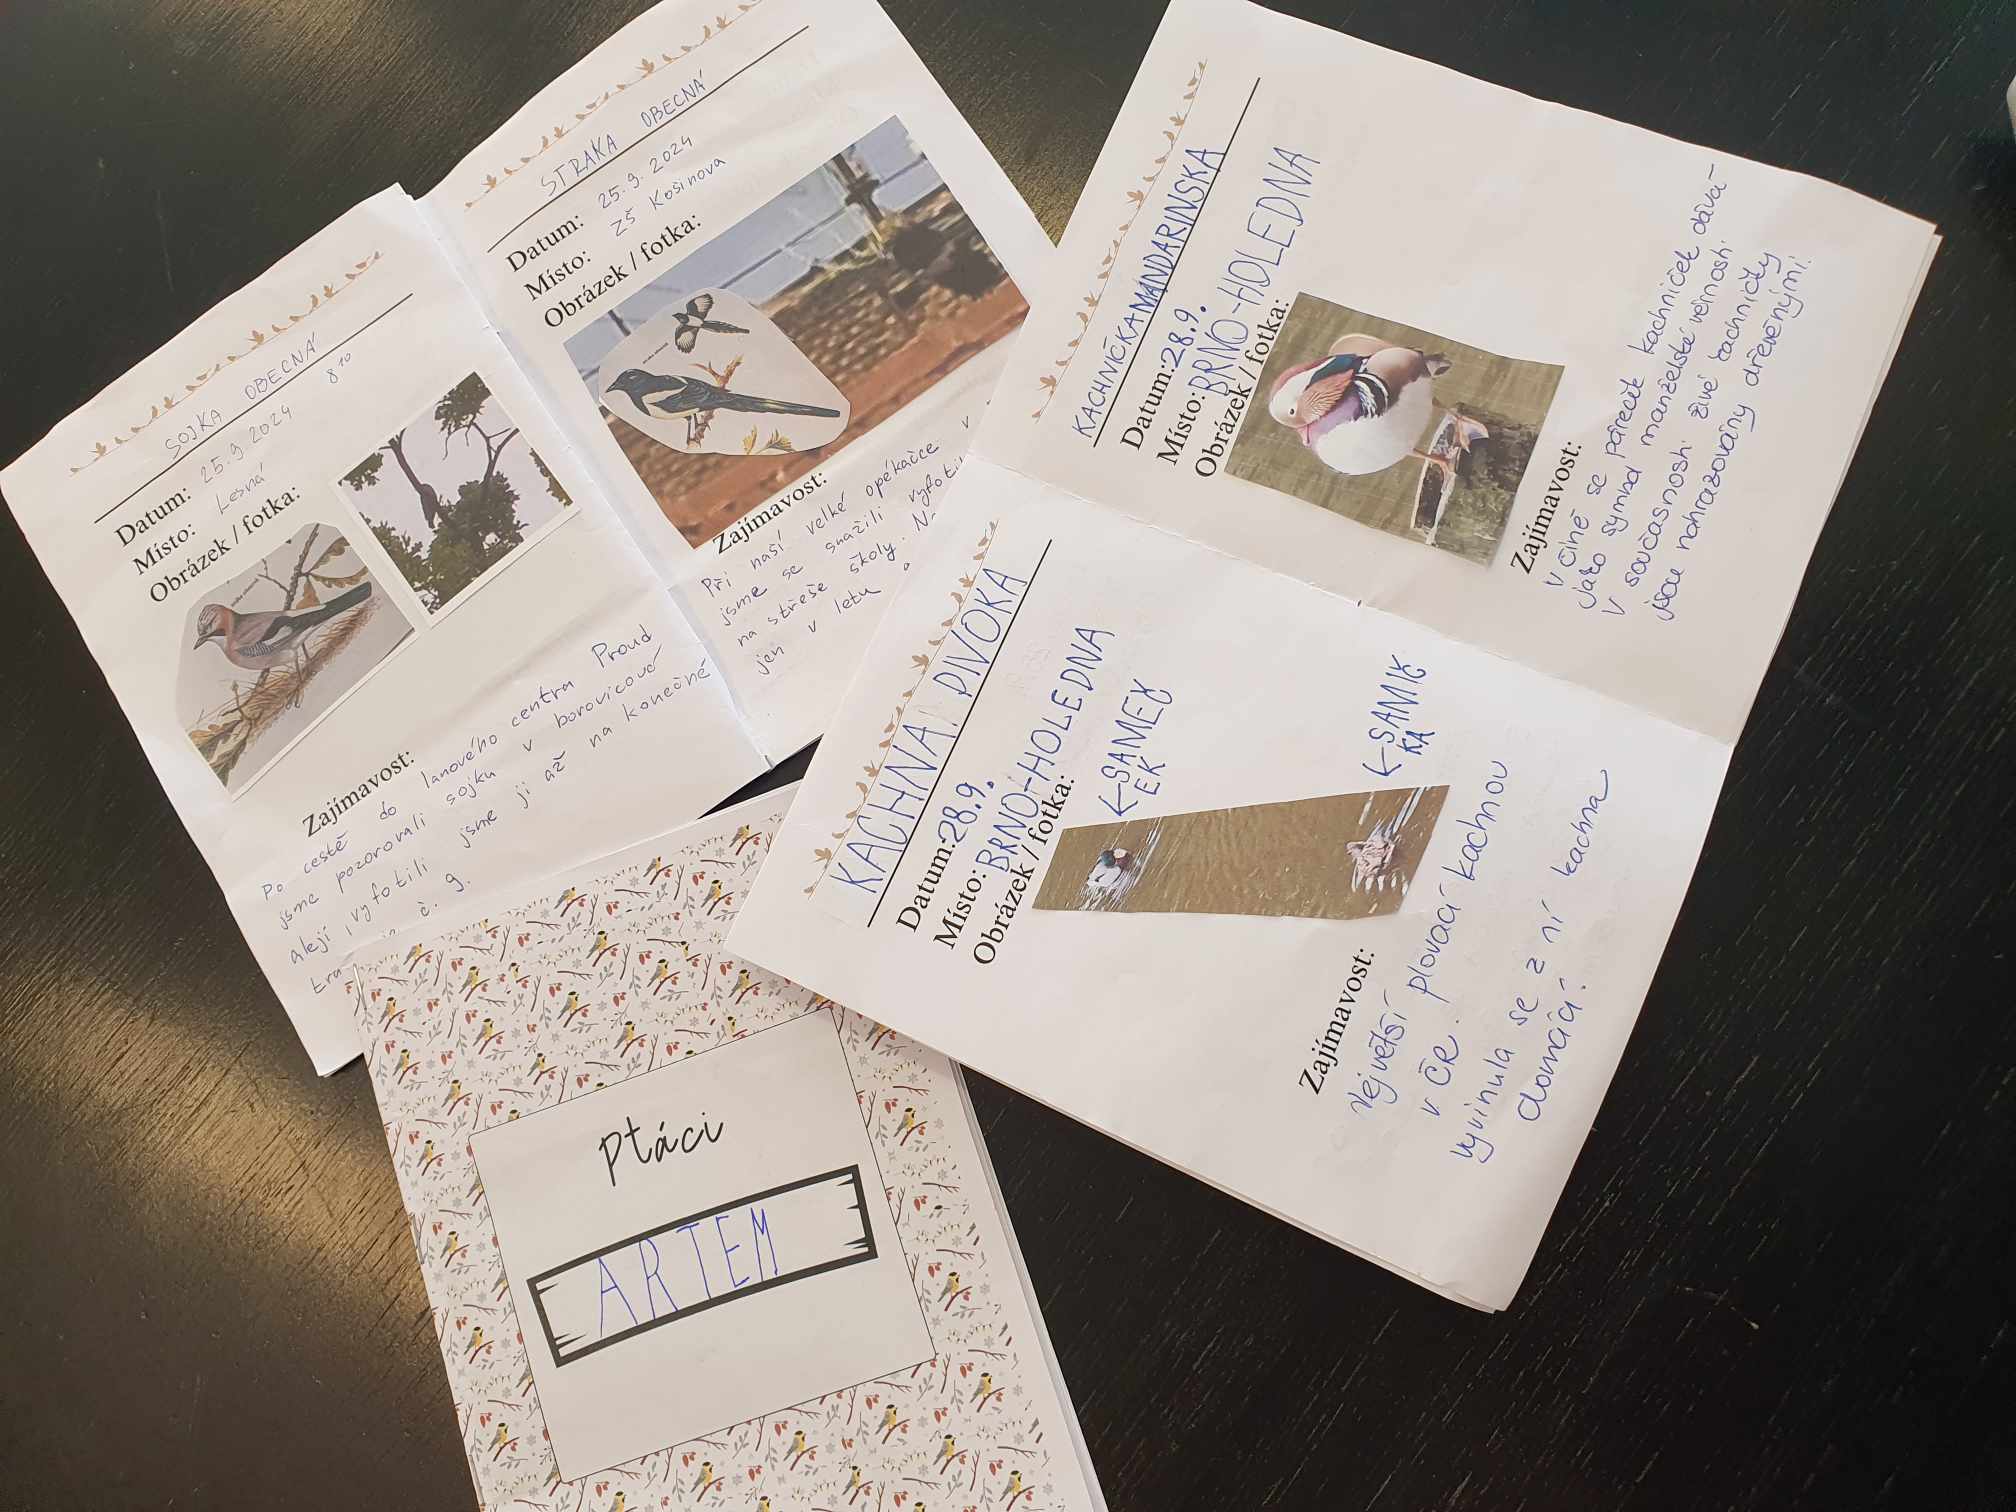 SOJKA OBECNÁ
Datum: 25.9.2024 8¹⁰
Místo: Lesná
Obrázek / fotka:
Zajímavost:
Po cestě do lanového centra Proud
jsme pozorovali sojku v borovicové
aleji, vyfotili jsme ji až na konečné
č. 9.
STRAKA OBECNÁ
Datum: 25.9.2024
Místo: ZŠ Košinova
Obrázek / fotka:
Zajímavost:
Při naší velké opékačce v
jsme se snažili
na střeše školy.
jen v letu
KACHNIČKA MANDARINSKÁ
Datum: 28.9.
Místo: BRNO-HOLEDNA
Obrázek / fotka:
Zajímavost:
V Číně se páreček kachniček dává-
jako symbol manželské věrnosti.
V současnosti živé kachničky
jsou nahrazovány dřevěnými.
KACHNA DIVOKA
Datum: 28.9.
Místo: BRNO-HOLEDNA
Obrázek / fotka:
←SAMEČ
EK
←SAMIČ
KA
Zajímavost:
Největší plovací kachnou
v ČR.
vyvinula se z ní kachna
domácí.
Ptáci
ARTEM